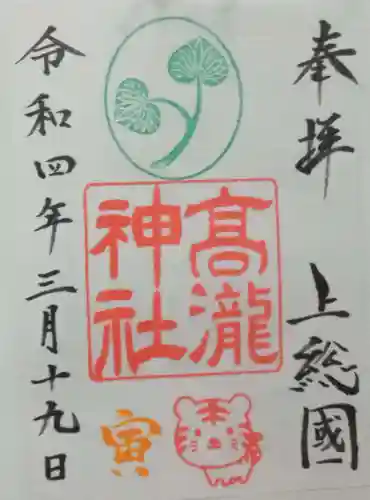 奉拝 上総國
髙瀧
神社
寅
令和四年三月十九日